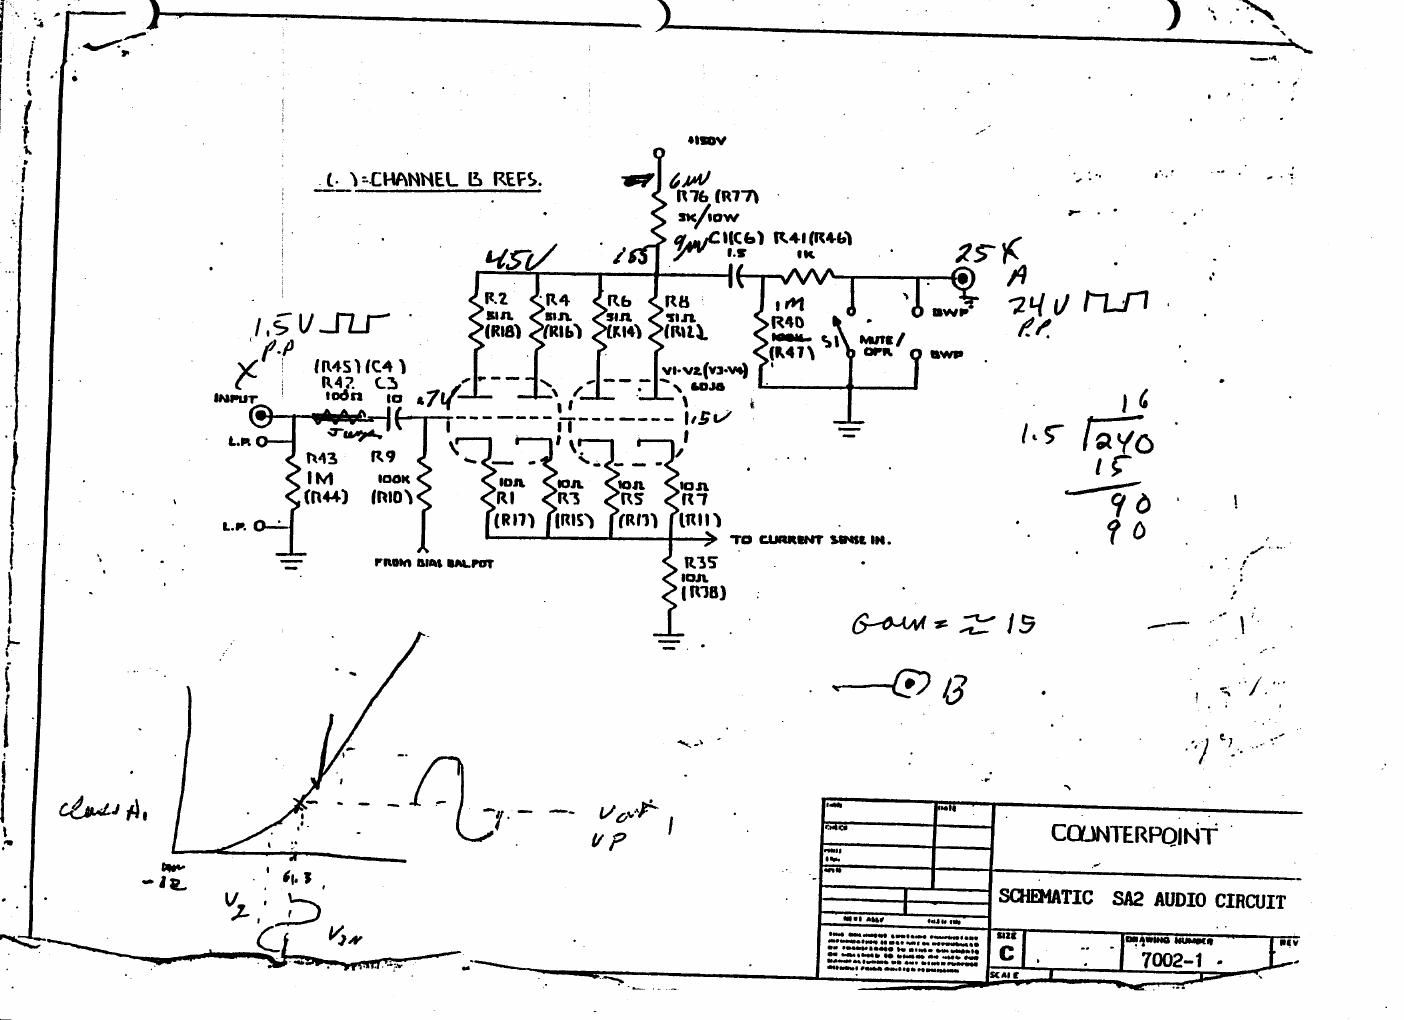 +150V
(. )=CHANNEL B REFS.
6mV
R76 (R77)
3K/10W
9mV
C1(C6)
1.5
R41(R46)
1K
45V
.155
25K
A
24V
P.P.
R2
51Ω
(R18)
R4
51Ω
(R16)
R6
51Ω
(R14)
R8
51Ω
(R12)
1M
R40
100K
(R47)
S1
MUTE/
OPR.
BWP
BWP
1.5V
P.P
X
INPUT
(R45)(C4)
R42 C3
100Ω 10
.74
V1-V2(V3-V4)
6DJ8
.5V
L.P.
R43
1M
(R44)
R9
100K
(R10)
L.P.
10Ω
R1
(R17)
10Ω
R3
(R15)
10Ω
R5
(R13)
10Ω
R7
(R11)
TO CURRENT SENSE IN.
FROM BIAS BAL.POT
R35
10Ω
(R38)
16
1.5 240
15
90
90
Gain = ≈ 15
B
Class A1
-12
61.3
Vout
VP
VIN
DATE
COUNTERPOINT
SCHEMATIC SA2 AUDIO CIRCUIT
NEXT ASSY
SIZE
C
DRAWING NUMBER
7002-1
REV
SCALE